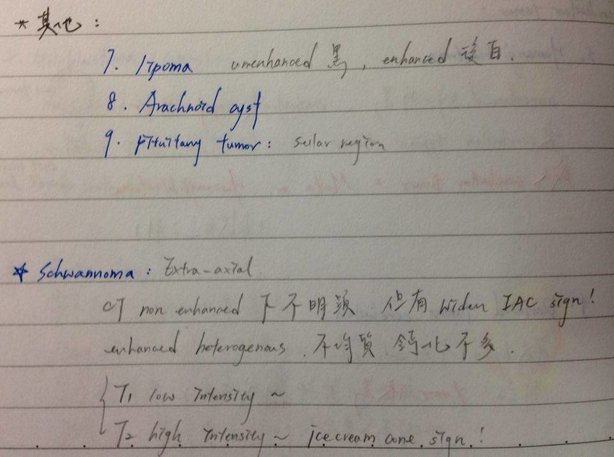 * 其他:
7. lipoma unenhanced 黑, enhanced 變白.
8. Arachnoid cyst
9. Pituitary tumor: sellar region
* Schwannoma: Extra-axial
CT non enhanced 下不明顯 但有 widen IAC sign!
enhanced heterogenous. 不均質 鈣化不多.
T1 low intensity ~
T2 high intensity ~ icecream cone sign!